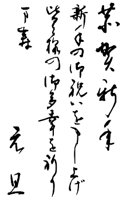 恭賀新年
新年の御祝いを申し上げ
皆々様の御多幸を祈り
ます
元旦